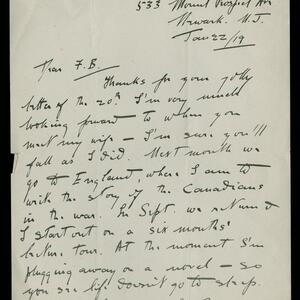 533 Mount Prospect Ave
Newark. N.J.
Jan 22/19
Dear F.B.
Thanks for your jolly
letter of the 20th. I'm very much
looking forward to when you
meet my wife – I'm sure you'll
fall as I did. Next month we
go to England, where I am to
write the story of the Canadians
in the war. In Sept. we return &
I start out on a six months'
lecture tour. At the moment I'm
plugging away on a novel – so
you see life doesn't go to sleep.